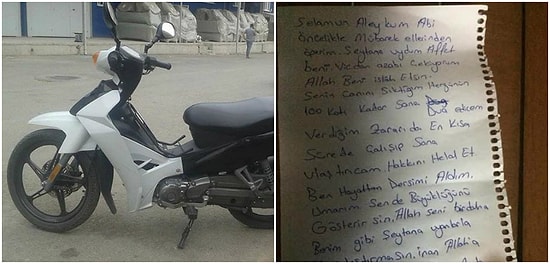 Selamun Aleykum Abi
öncelikle Mübarek ellerinden
öperim. Şeytana uydum Affet
beni Vicdan azabı Çekiyorum
Allah Beni ıslah Etsin.
Senin Canını Sıktığım Hergünün
100 Katı Kadar Sana Dua edicem
Verdiğim Zararıda En Kısa
Sürede Çalışıp Sana
Ulaştırıcam Hakkını Helal Et
Ben Hayattan Dersimi Aldım.
Umarım Sende Büyüklüğünü
Gösterirsin. Allah seni birdaha
Benim gibi Şeytana uyanlarla
inan Allah'a